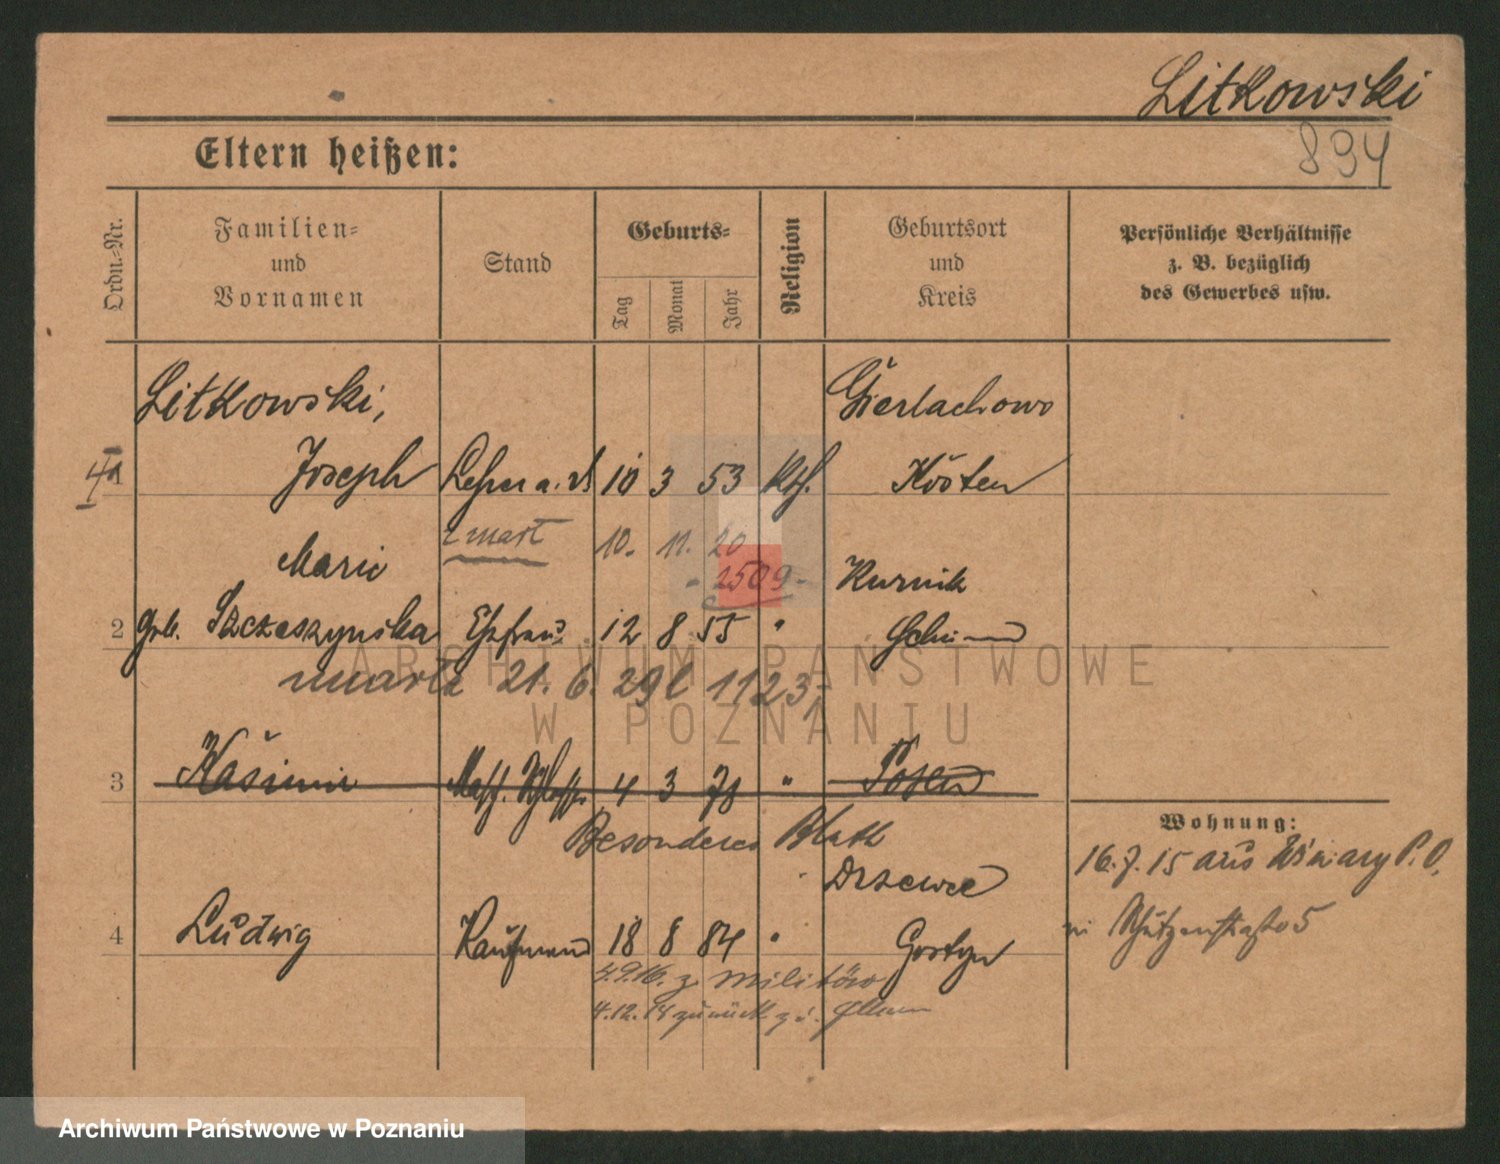 Litkowski
894
Eltern heißen:
Ordn.-Nr.
Familien-
und
Vornamen
Stand
Geburts-
Tag
Monat
Jahr
Religion
Geburtsort
und
Kreis
Persönliche Verhältnisse
z. B. bezüglich
des Gewerbes usw.
Litkowski,
Gierlachowo
1
Joseph
Lehrer a. D.
10 3 53
Kth.
Kosten
zmarł
10. 11. 20
- 2509 -
Marie
Kurnik
2
geb. Szczeszynska
Ehefrau
12 8 55
"
Schrimm
umarła 21. 6. 29
1123
3
Kasimir
Masch. Schlosser
4 3 78
"
Posen
Besonderes Blatt
Wohnung:
16. 7. 15 aus Winiary P. O.
Schützenstraße 5
Drzewce
4
Ludwig
Kaufmann
18 8 84
"
Gostyn
4.9.16. z. Militär
4.12. zurück z. d. Eltern
ARCHIWUM PAŃSTWOWE
W POZNANIU
Archiwum Państwowe w Poznaniu